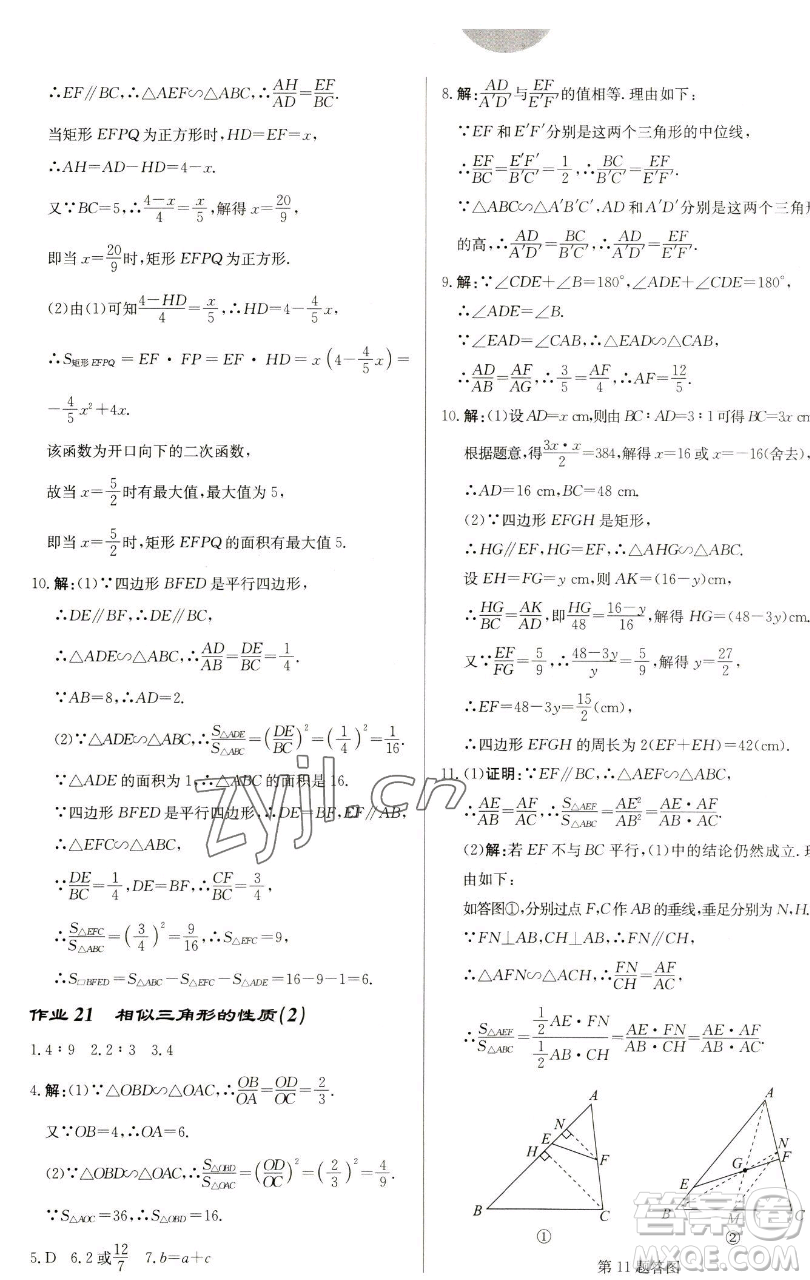 ∴EF∥BC,∴△AEF∽△ABC,∴AH/AD=EF/BC.
当矩形EFPQ为正方形时,HD=EF=x,
∴AH=AD-HD=4-x.
又∵BC=5,∴(4-x)/4=x/5,解得x=20/9,
即当x=20/9时,矩形EFPQ为正方形.
(2)由(1)可知(4-HD)/4=x/5,∴HD=4-4/5x,
∴S矩形EFPQ=EF·FP=EF·HD=x(4-4/5x)=
-4/5x²+4x.
该函数为开口向下的二次函数,
故当x=5/2时有最大值,最大值为5,
即当x=5/2时,矩形EFPQ的面积有最大值5.
10.解:(1)∵四边形BFED是平行四边形,
∴DE∥BF,∴DE∥BC,
∴△ADE∽△ABC,∴AD/AB=DE/BC=1/4.
∵AB=8,∴AD=2.
(2)∵△ADE∽△ABC,∴S△ADE/S△ABC=(DE/BC)²=(1/4)²=1/16.
∵△ADE的面积为1,∴△ABC的面积是16.
∵四边形BFED是平行四边形,∴DE=BF,EF∥AB,
∴△EFC∽△ABC,
∵DE/BC=1/4,DE=BF,∴CF/BC=3/4,
∴S△EFC/S△ABC=(3/4)²=9/16,∴S△EFC=9,
∴S□BFED=S△ABC-S△EFC-S△ADE=16-9-1=6.
作业21 相似三角形的性质(2)
1.4∶9 2.2∶3 3.4
4.解:(1)∵△OBD∽△OAC,∴OB/OA=OD/OC=2/3.
又∵OB=4,∴OA=6.
(2)∵△OBD∽△OAC,∴S△OBD/S△OAC=(OD/OC)²=(2/3)²=4/9.
∵S△AOC=36,∴S△OBD=16.
5.D 6.2或12/7 7.b=a+c
8.解:AD/A′D′与EF/E′F′的值相等.理由如下:
∵EF和E′F′分别是这两个三角形的中位线,
∴EF/BC=E′F′/B′C′=1/2,∴BC/B′C′=EF/E′F′.
∵△ABC∽△A′B′C′,AD和A′D′分别是这两个三角形
的高,∴AD/A′D′=BC/B′C′,∴AD/A′D′=EF/E′F′.
9.解:∵∠CDE+∠B=180°,∠ADE+∠CDE=180°,
∴∠ADE=∠B.
∵∠EAD=∠CAB,∴△EAD∽△CAB,
∴AD/AB=AF/AG,∴3/5=AF/4,∴AF=12/5.
10.解:(1)设AD=x cm,则由BC∶AD=3∶1可得BC=3x cm
根据题意,得3x·x/2=384,解得x=16或x=-16(舍去),
∴AD=16 cm,BC=48 cm.
(2)∵四边形EFGH是矩形,
∴HG∥EF,∴△AHG∽△ABC.
设EH=FG=y cm,则AK=(16-y)cm,
∴HG/BC=AK/AD,即HG/48=(16-y)/16,解得HG=(48-3y)cm.
又∵EF/FG=5/9,∴(48-3y)/y=5/9,解得y=27/2,
∴EF=48-3y=15/2(cm),
∴四边形EFGH的周长为2(EF+EH)=42(cm).
11.(1)证明:∵EF∥BC,∴△AEF∽△ABC,
∴AE/AB=AF/AC,∴S△AEF/S△ABC=AE²/AB²=AE·AF/AB·AC.
(2)解:若EF不与BC平行,(1)中的结论仍然成立.理
由如下:
如答图①,分别过点F,C作AB的垂线,垂足分别为N,H.
∵FN⊥AB,CH⊥AB,∴FN∥CH,
∴△AFN∽△ACH,∴FN/CH=AF/AC,
∴S△AEF/S△ABC=(1/2AE·FN)/(1/2AB·CH)=AE·FN/AB·CH=AE·AF/AB·AC.
A N E H F B C
①
A N G F E B M C
②
第11题答图
zyjl.cn
答案圈
MXQE.COM